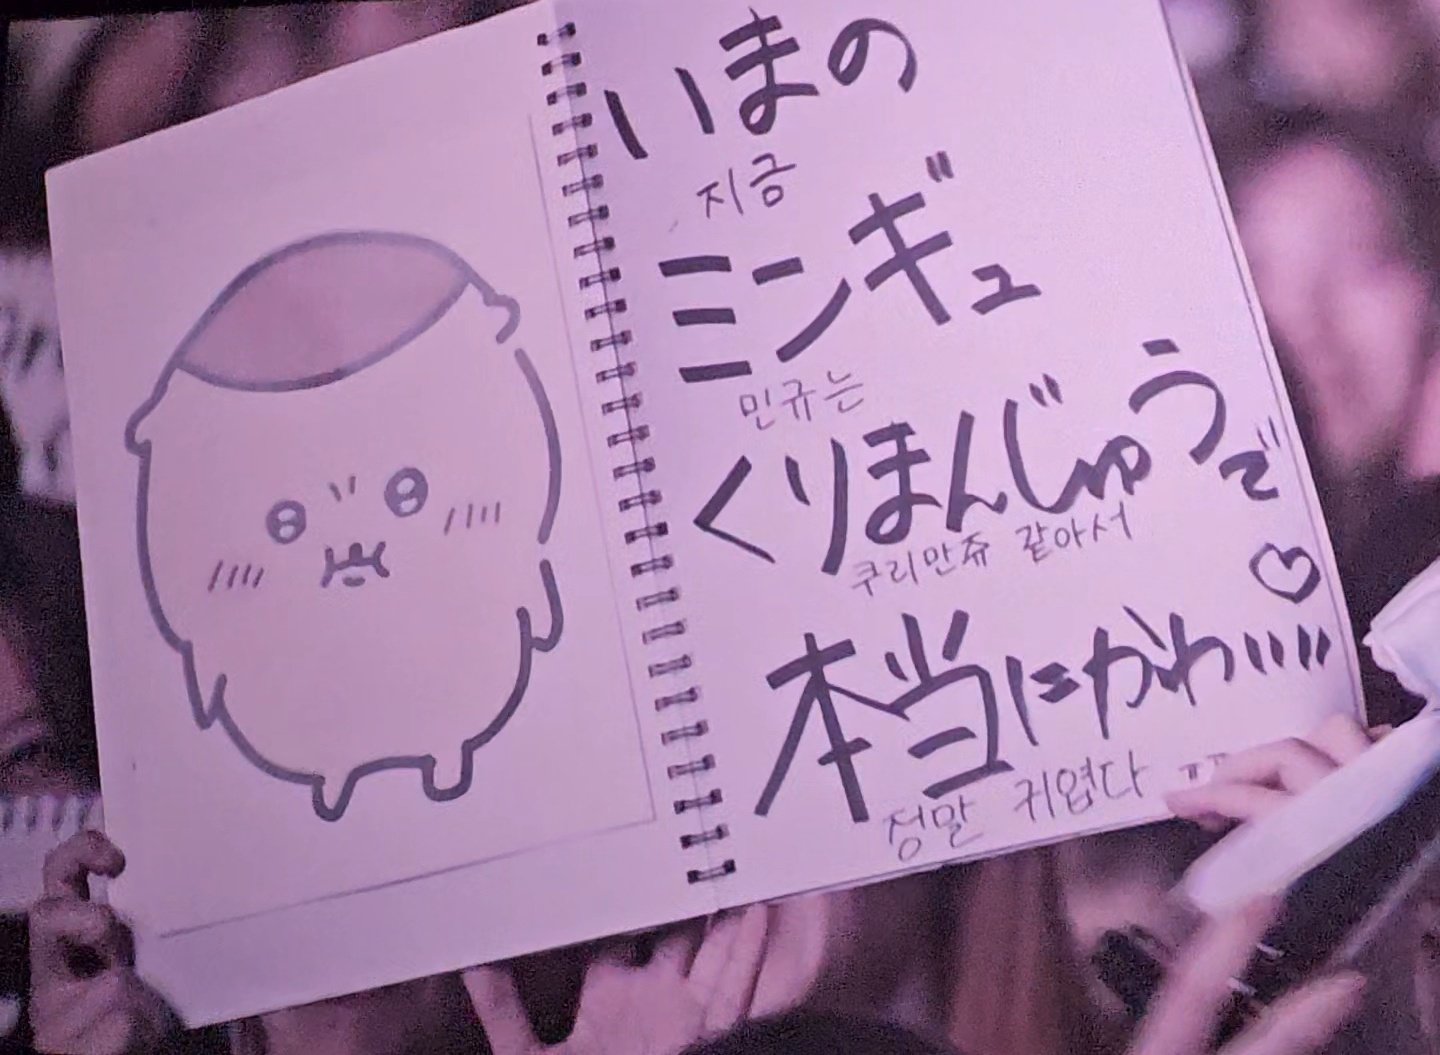 いまの
지금
ミンギュ
민규는
くりまんじゅうで
쿠리만쥬 같아서
本当にかわいいい
정말 귀엽다 ㅠㅠ